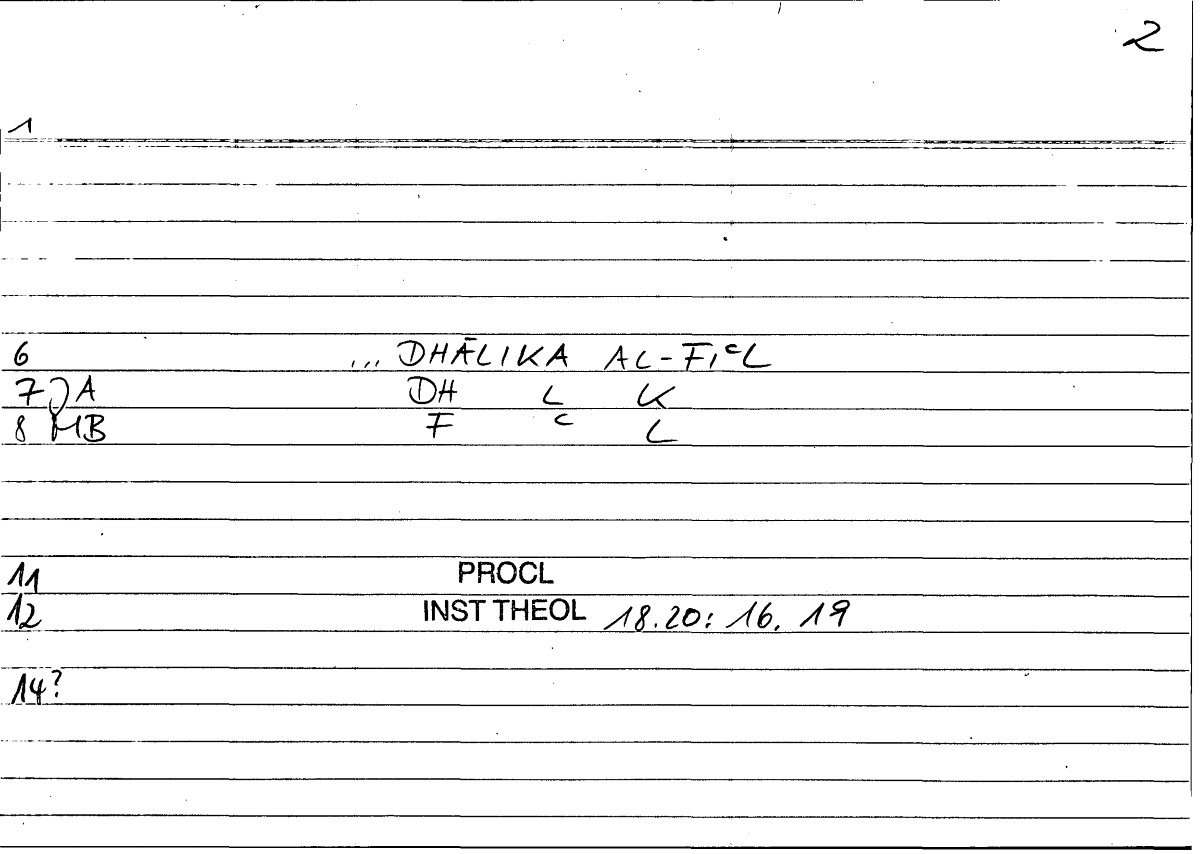 2
1
6 ... DHĀLIKA AL-FIᶜL
7 JA DH L K
8 MB F ᶜ L
11 PROCL
12 INST THEOL 18.20: 16. 19
14?